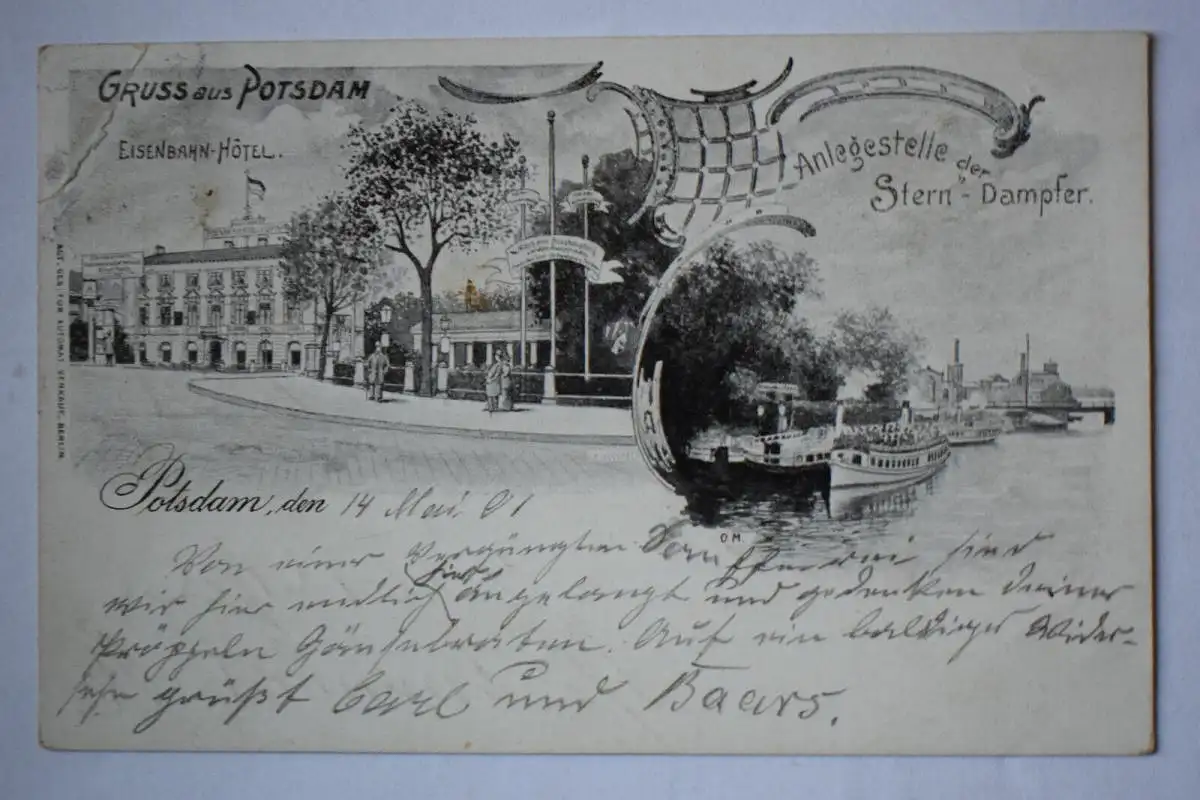 GRUSS aus POTSDAM
EISENBAHN-HÔTEL.
Anlegestelle der
„Stern"-Dampfer.
ACT. GES. FÜR AUTOMAT. VERKAUF, BERLIN
O.M.
Potsdam, den 14 Mai. 01
Von einer sind
wir hier endlich hier angelangt und gedenken Deiner
Gänsebraten. Auf ein baldiges Wider-
sehn grüßt Carl und Baars.